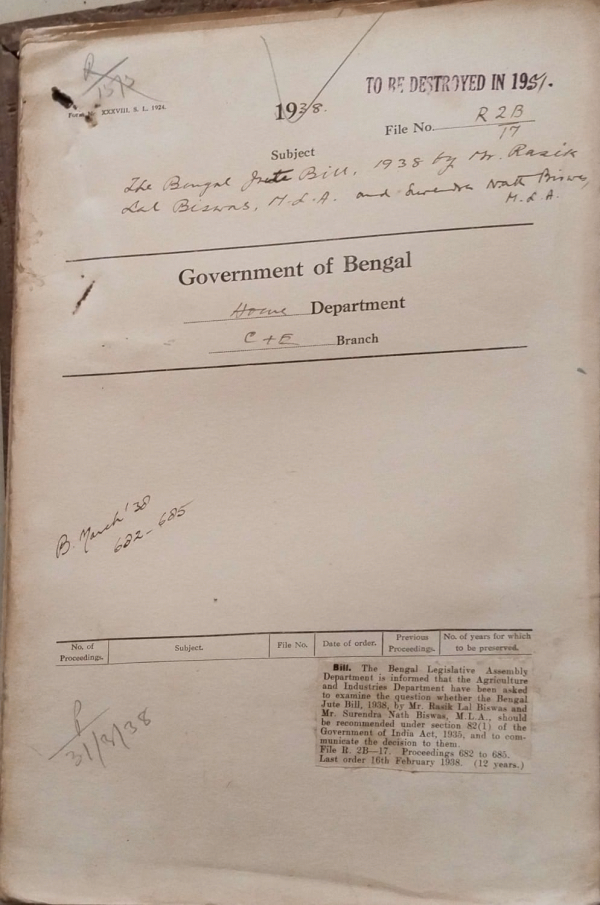 P
15/3
TO BE DESTROYED IN 1951.
XXXVIII, S. L. 1924.
1938.
File No. R 2B
17
Subject
The Bengal Jute Bill, 1938 by Mr. Rasik
Lal Biswas, M.L.A. and Surendra Nath Biswas,
M.L.A.
Government of Bengal
Home Department
C + E Branch
B. March '38
682-685
No. of
Proceedings.
Subject.
File No.
Date of order.
Previous
Proceedings.
No. of years for which
to be preserved.
Bill. The Bengal Legislative Assembly
Department is informed that the Agriculture
and Industries Department have been asked
to examine the question whether the Bengal
Jute Bill, 1938, by Mr. Rasik Lal Biswas and
Mr. Surendra Nath Biswas, M.L.A., should
be recommended under section 82(1) of the
Government of India Act, 1935, and to com-
municate the decision to them.
File R. 2B—17. Proceedings 682 to 685.
Last order 16th February 1938. (12 years.)
P
31/3/38